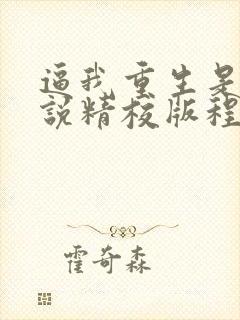 逼我重生是
说精校版程
霍奇森